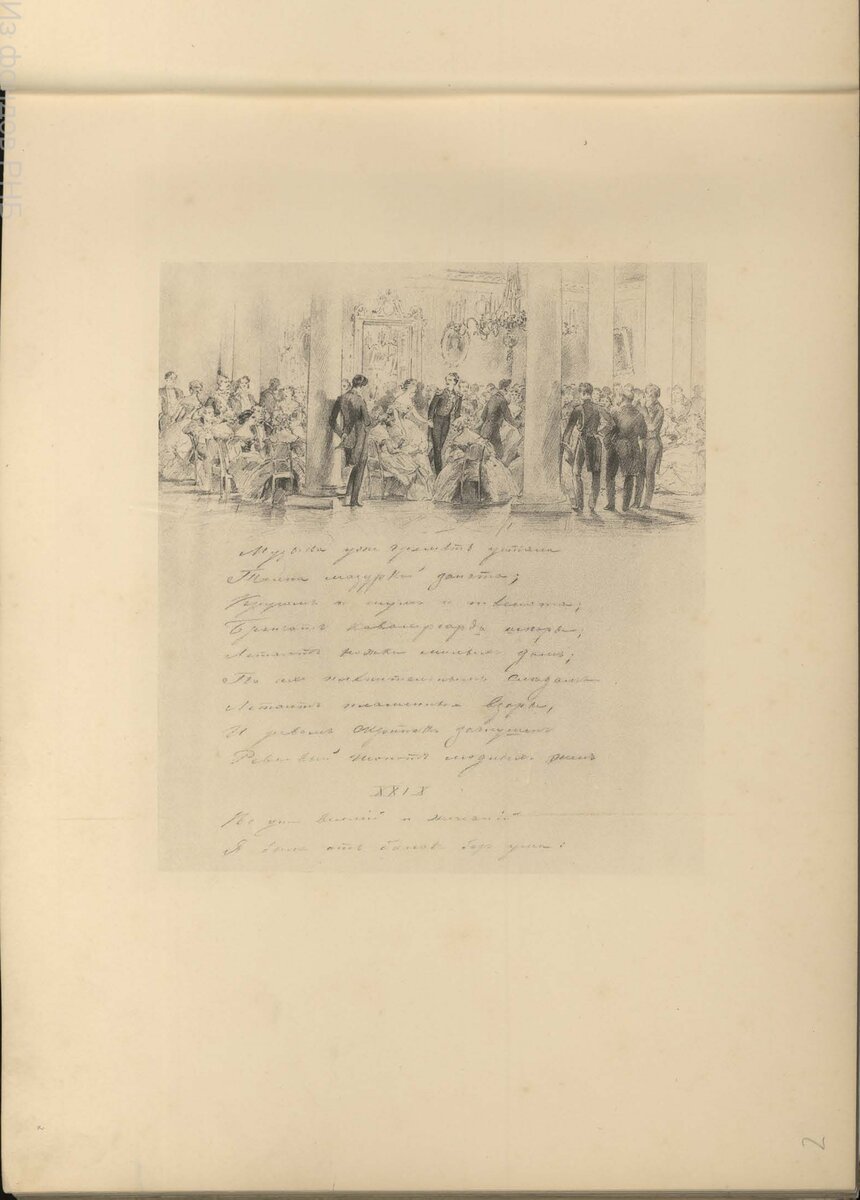 Из фондов РНБ
Музыка ужъ гремѣть устала
Толпа мазуркой занята;
Кругомъ и шумъ и тѣснота;
Бренчатъ кавалергарда шпоры;
Летаютъ ножки милыхъ дамъ;
По ихъ плѣнительнымъ слѣдамъ
Летаютъ пламенные взоры,
И ревомъ скрыпокъ заглушенъ
Ревнивый шопотъ модныхъ женъ
XXIX
Во дни веселій и желаній
Я былъ отъ баловъ безъ ума:
2